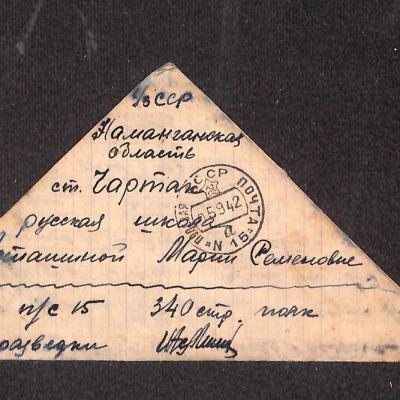 УзССР
Наманганская
область
ст. Чартак
русская школа
Марии Семёновне
п/с 15 340 стр. полк
разведки
СССР ПОЧТА
5 9 42
а
N 15